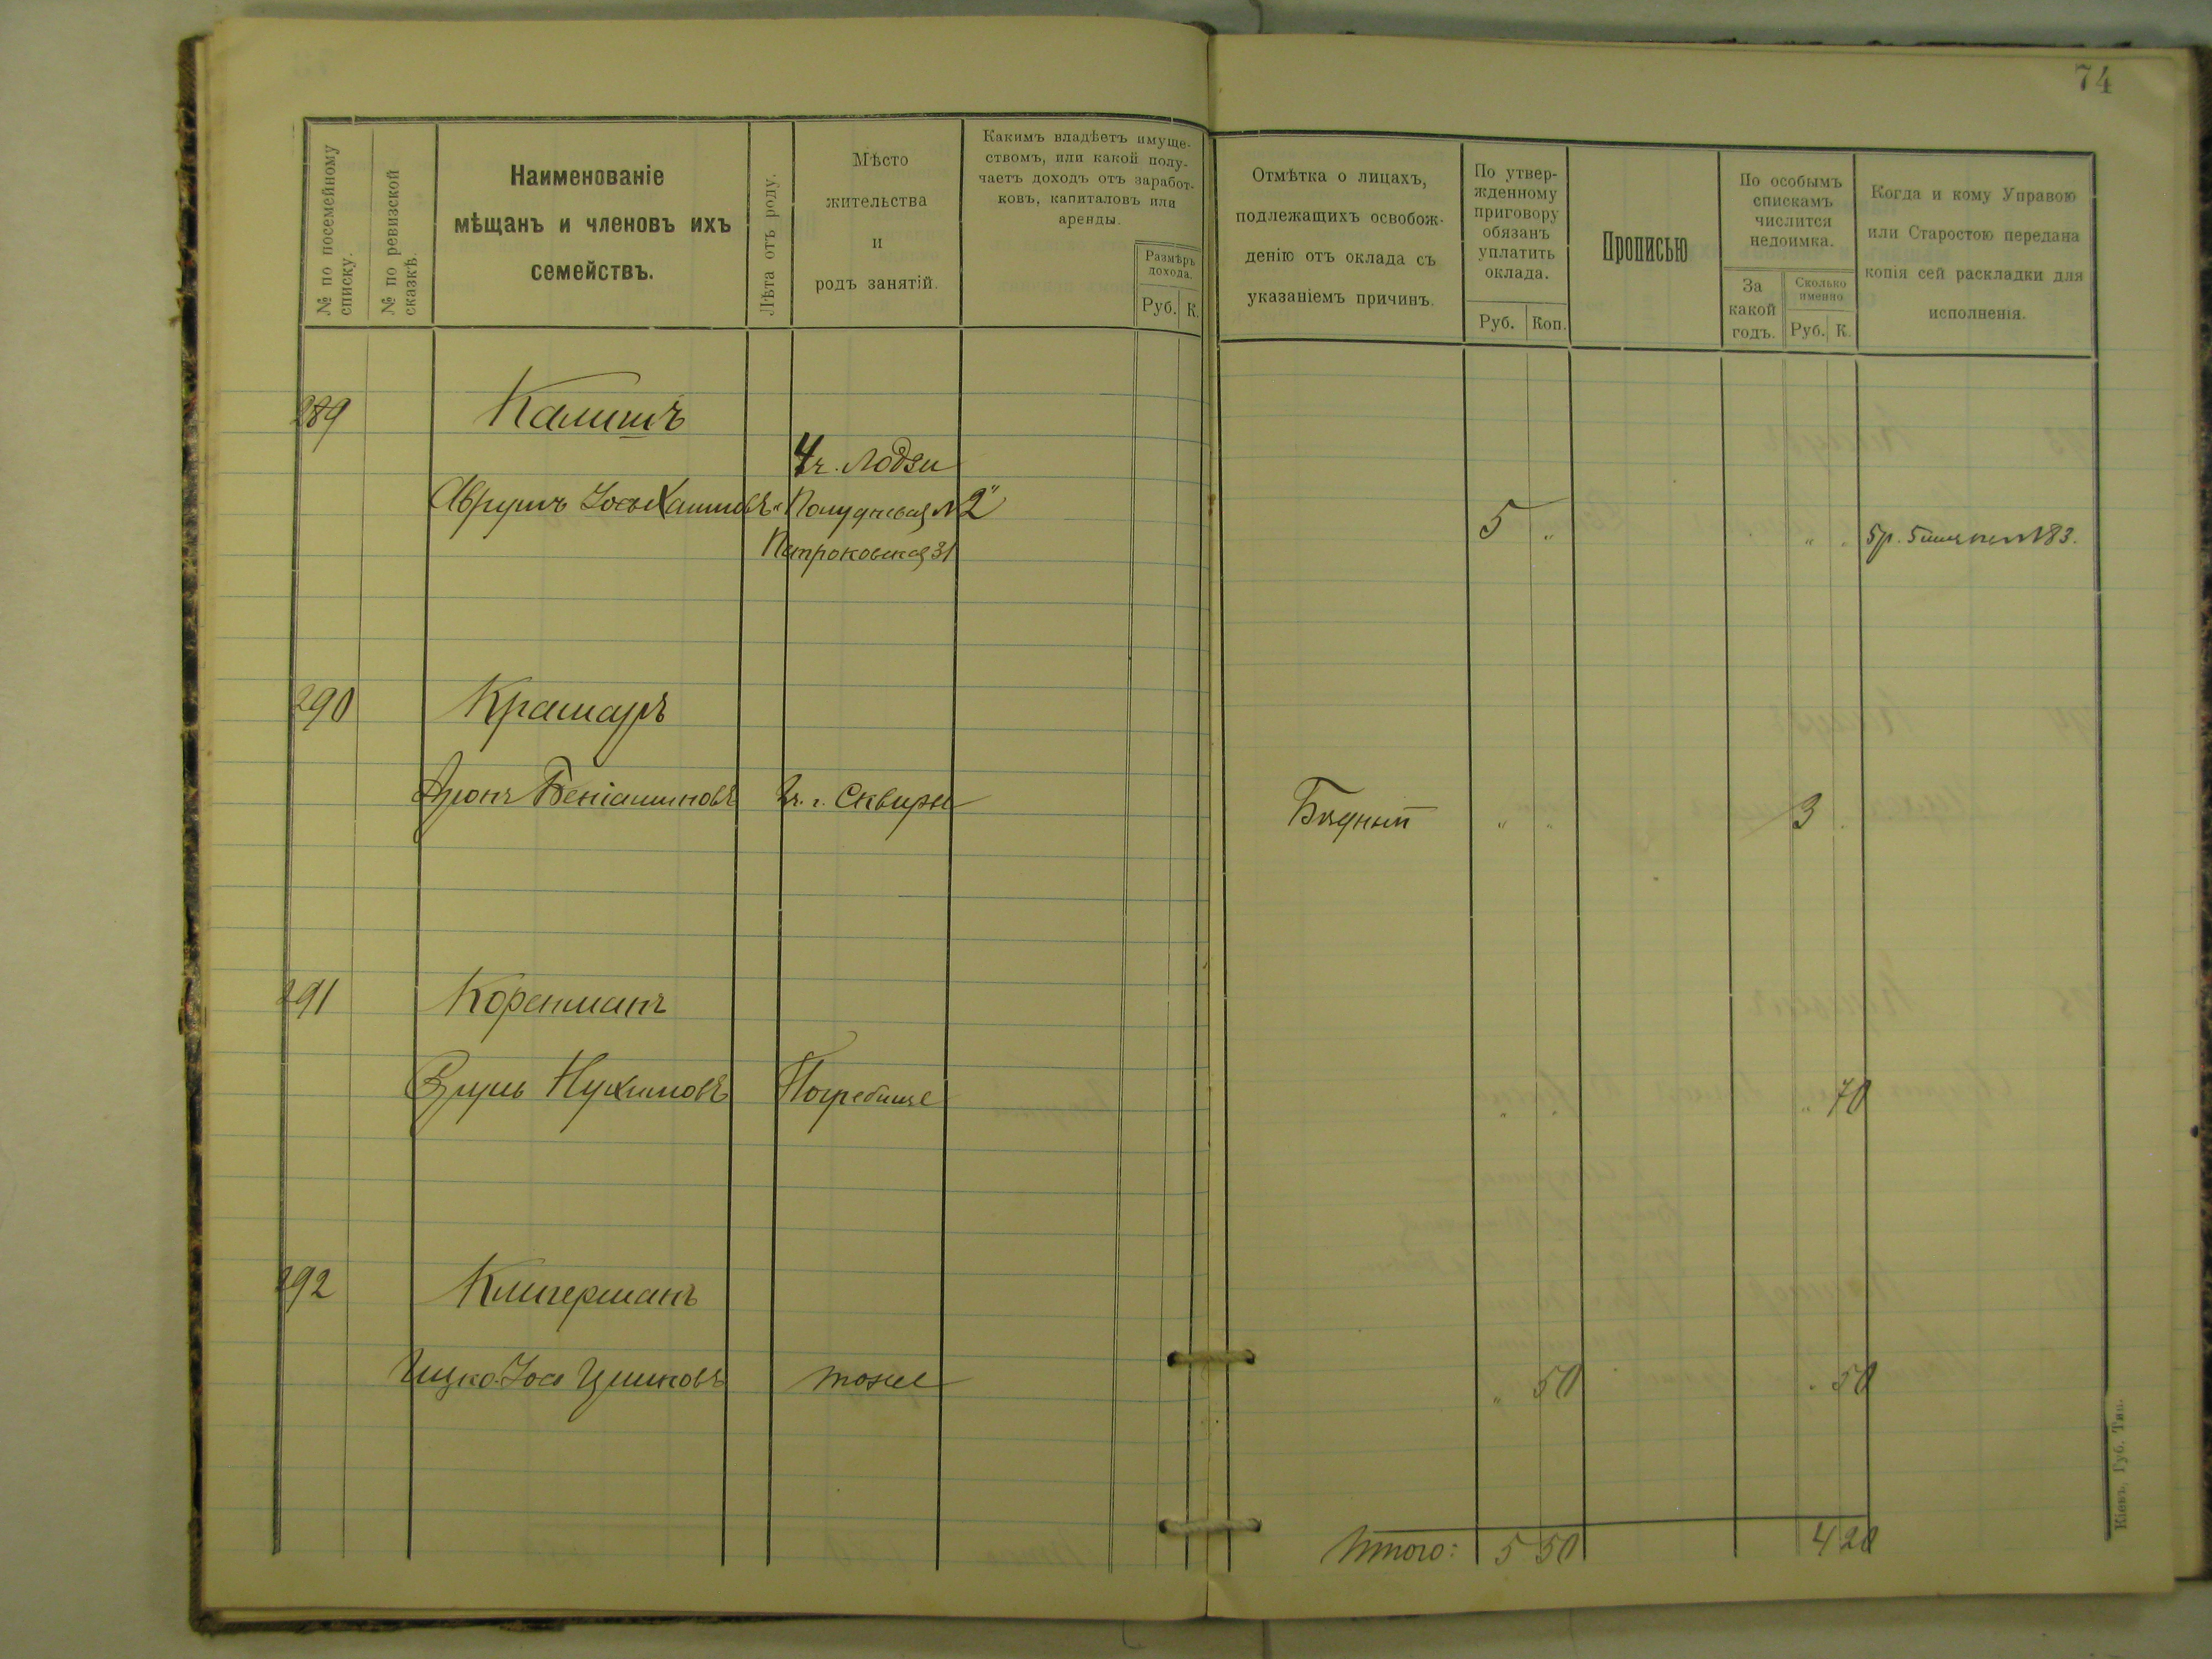 74
№ по посемейному списку.
№ по ревизской сказкѣ.
Наименованіе
мѣщанъ и членовъ ихъ
семействъ.
Лѣта отъ роду.
Мѣсто
жительства
и
родъ занятій.
Какимъ владѣетъ имуще-
ствомъ, или какой полу-
чаетъ доходъ отъ заработ-
ковъ, капиталовъ или
аренды.
Размѣръ
дохода.
Руб. К.
Отмѣтка о лицахъ,
подлежащихъ освобож-
денію отъ оклада съ
указаніемъ причинъ.
По утвер-
жденному
приговору
обязанъ
уплатить
оклада.
Руб. Коп.
Прописью
По особымъ
спискамъ
числится
недоимка.
За
какой
годъ.
Сколько
именно
Руб. К.
Когда и кому Управою
или Старостою передана
копія сей раскладки для
исполненія.
289 Калишъ
г. Лодзи
Аврумъ Хаимовъ Полудневая № 2
5 „ „ 5р. 5 №83.
Петроковская 31
290 Крамаръ
Аронъ Беніаминовъ г. Сквира Бѣдный „ „ 3
291 Коренманъ
Сруль Нухимовъ Погребище „ „ „ 70
292 Клигерманъ
Ицко-Іосъ тоже „ 50 50
Итого: 5 50 4 20
Кіевъ, Губ. Тип.